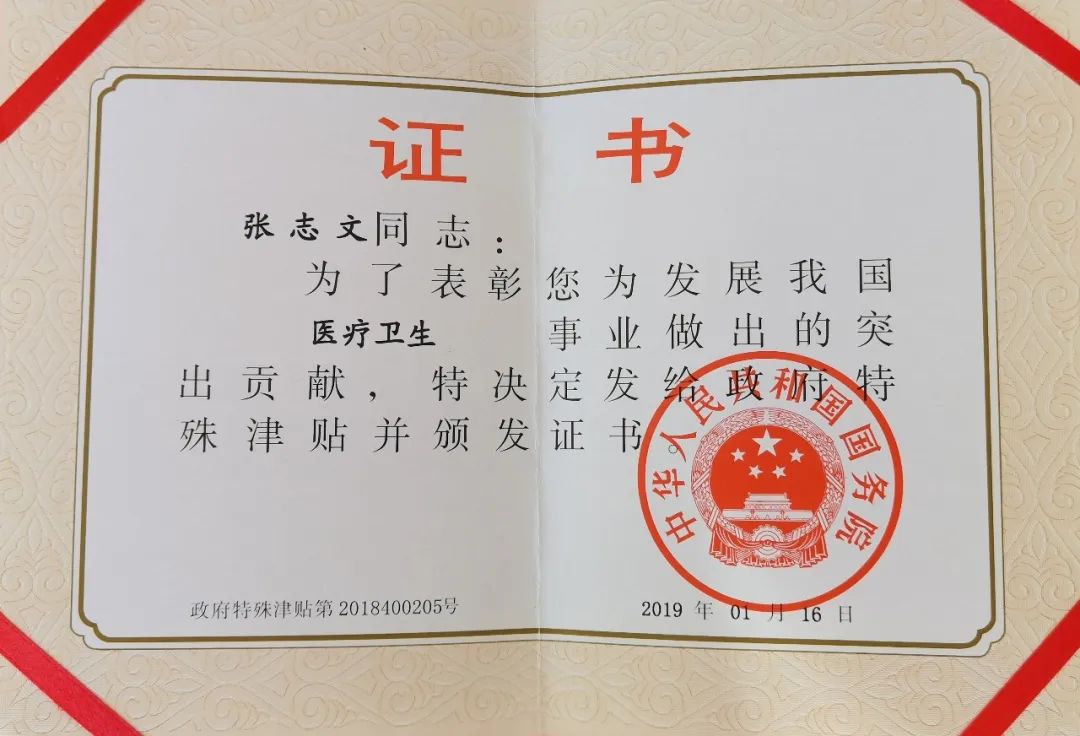 证书
张志文同志：
为了表彰您为发展我国
医疗卫生 事业做出的突
出贡献，特决定发给政府特
殊津贴并颁发证书。
中华人民共和国国务院
政府特殊津贴第2018400205号
2019 年 01 月 16 日